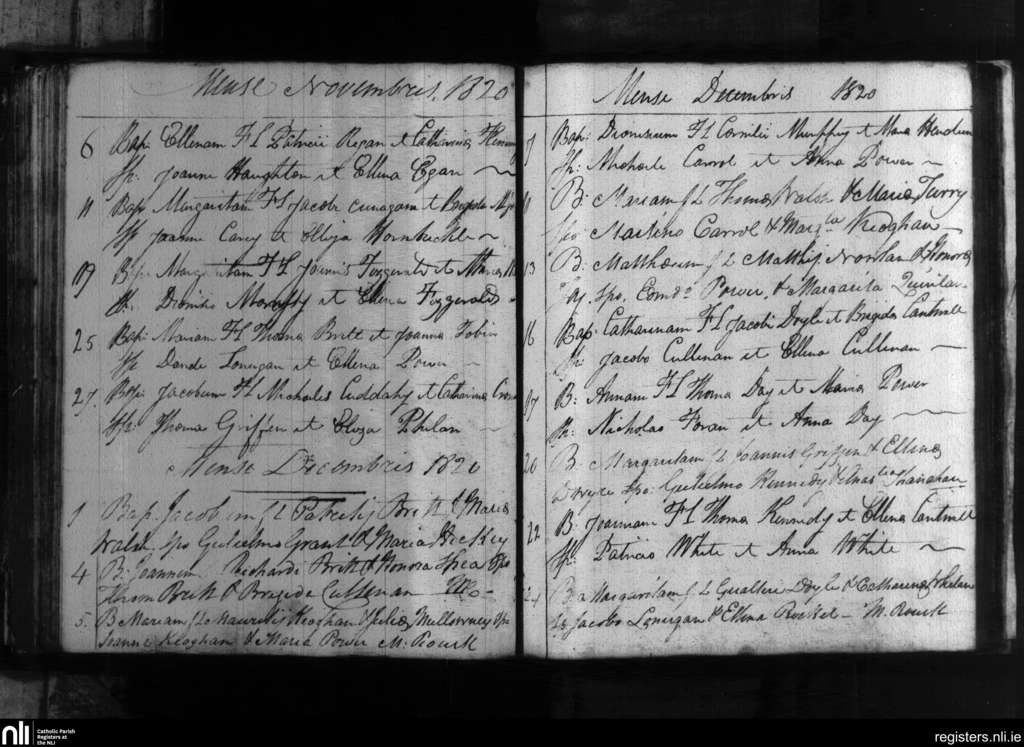 Mense Novembris, 1820
6 Bap: Ellenam FL Patricii Regan et Catharina
Sp: Joanne Haughton et Ellena Egan
11 Bap: Margaritam FL Jacobi et Brigida
Sp Joanne Carey et Eliza Hornibichle
19 Bap: Margaritam FL Joannis Fitzgerald et Maria
Sp. Dionisio et Ellena Fitzgerald
25 Bap: Mariam FL Thoma Britt et Joanna Tobin
Sp Davide Lonergan et Ellena Power
27. Bap: Jacobum FL Michaelis Cuddahy et Catharina
Sp: Thoma Griffen et Eliza Phelan
Mense Decembris 1820
1 Bap. Jacobum f L Patritij Britt & Maria
Walsh, Spo Gulielmo Grant & Maria Hickey
4 B. Joannem Richardi Britt & Honora Shea Spo
Thom Britt & Brigida Cullenan
5. B Mariam f L Mauritii Keoghan & Mullowney Spo
Joanne Keoghan & Maria Power M. Rourk
Mense Decembris 1820
7 Bap: Dionisium FL Cornelii Murphy et Maria
Sp: Michaele Carrol et Anna Power
11 B: Mariam f L Thoma Walsh & Maria Turry
Spo Martino Carrol & Marg.ta Keoghan
13 B: Matthæum f L Matthij Nowlan & Honora
Spo. Edmd. Power, & Margarita Quinlan
16 Bap: Catharinam FL Jacobi Doyle et Brigida Cantwell
Sp: Jacobo Cullenan et Ellena Cullenan
17 B: Annam FL Thoma Day et Maria Power
Sp: Nicholao Foran et Anna Day
20 B. Margaritam f L Joannis Griffen & Ellena
Dwyre Spo: Gulielmo Kennedy & Shanahan
22 B: Joannam FL Thoma Kennedy et Ellena Cantwell
Sp: Patricio White et Anna White
24 Ba Margaritam f L Gualteri Doyle & Catharina Phelan
Sp Jacobo Lonergan & Ellena M. Rourk
nli Catholic Parish
Registers at
the NLI
registers.nli.ie